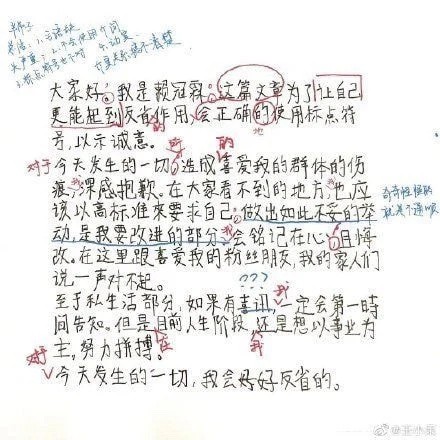 大家好，我是赖冠霖。这篇文章为了让自己
更能起到反省作用，会正确的使用标点符
号，以示诚意。
今天发生的一切，造成喜爱我的群体的伤
痕，深感抱歉。在大家看不到的地方，也应
该以高标准来要求自己，做出如此不妥的举
动，是我要改进的部分，会铭记在心，且悔
改。在这里跟喜爱我的粉丝朋友，我的家人们
说一声对不起。
至于私生活部分，如果有喜讯，一定会第一時
间告知。但是目前人生阶段，还是想以事业为
主，努力拼搏。
今天发生的一切，我会好好反省的。
对于
的
地
所
的
我
???
我
在
我
对于
奇奇怪怪的
就是不通顺
@王小呆